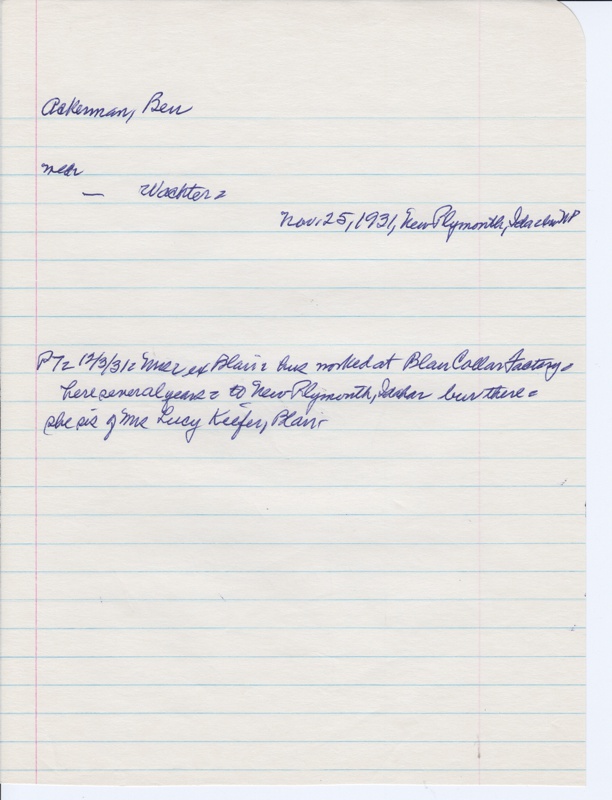 Ackerman, Ben
mrs
— Wachter =
Nov. 25, 1931, New Plymouth, Idaho
PT= 12/3/31= ex Blair= hus worked at Blair Collar Factory=
here several years= to New Plymouth, Idaho bur there=
she sis of Mrs Lucy Keefer, Blair